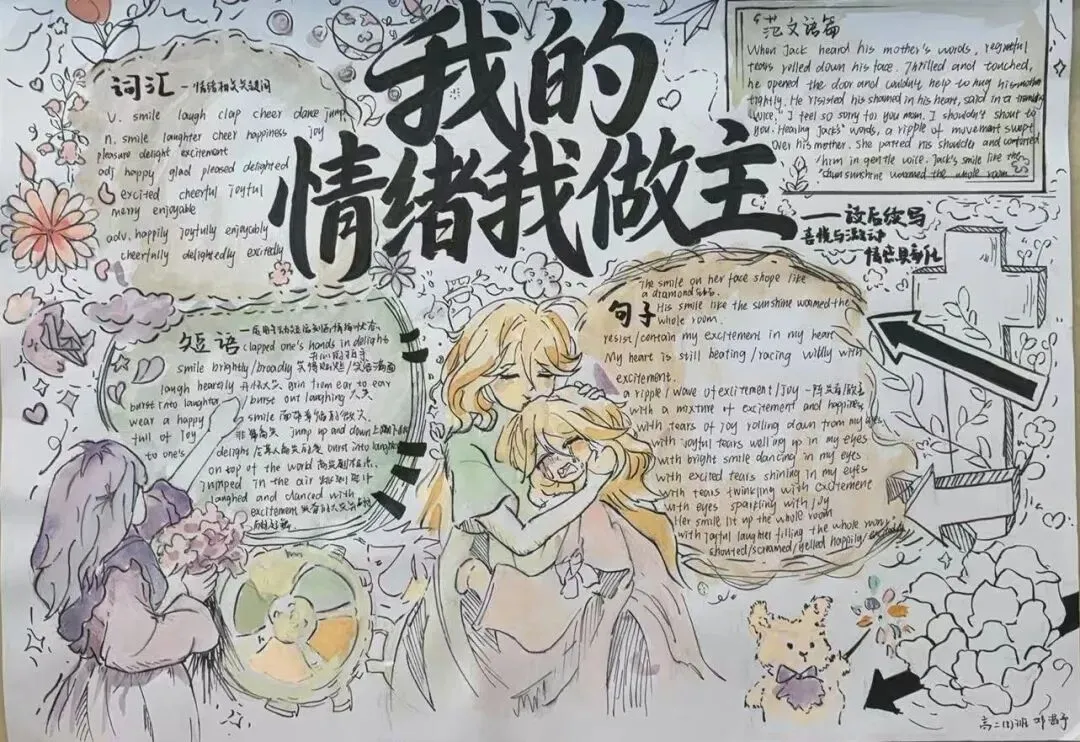 我的
情绪我做主
词汇
v. smile laugh clap cheer dance jump
n. smile laughter cheer happiness joy
pleasure delight excitement
adj happy glad pleased delighted
excited cheerful joyful
merry enjoyable
adv. happily joyfully enjoyably
cheerfully delightedly excitedly
范文语篇
When Jack heard his mother's words, regretful
tears rolled down his face. Thrilled and touched,
he opened the door and couldn't help to hug his mother
tightly. He risisted his shamed in his heart, said in a
voice, "I feel so sorry for you mom. I shouldn't shout to
you. Healing Jack's words, a ripple of movement swept
over his mother. She patted his shoulder and comforted
him in gentle voice. Jack's smile like the
sunshine warmed the whole room
——读后续写
喜悦与激动
短语
clapped one's hands in delight
smile brightly/broadly
laugh heartily 开怀大笑 grin from ear to ear
burst into laughter burst out laughing 大笑
wear a happy smile
full of joy jump up and down
to one's delight burst into laughter
on top of the world
jumped in the air
laughed and danced with
excitement
句子
The smile on her face shope like
a diamond
His smile like the sunshine warmed the
whole room.
resist/contain my excitement in my heart
My heart is still beating/racing wildly with
excitement.
a ripple/wave of excitement/joy
with a mixture of excitement and happiness
with tears of joy rolling down from my eyes
with joyful tears welling up in my eyes
with bright smile dancing in my eyes
with excited tears shining in my eyes
with tears twinkling with excitement
with eyes sparkling with joy
Her smile lit up the whole room
with joyful laughter filling the whole room
shouted/screamed/yelled happily/excitedly
高二(1)班